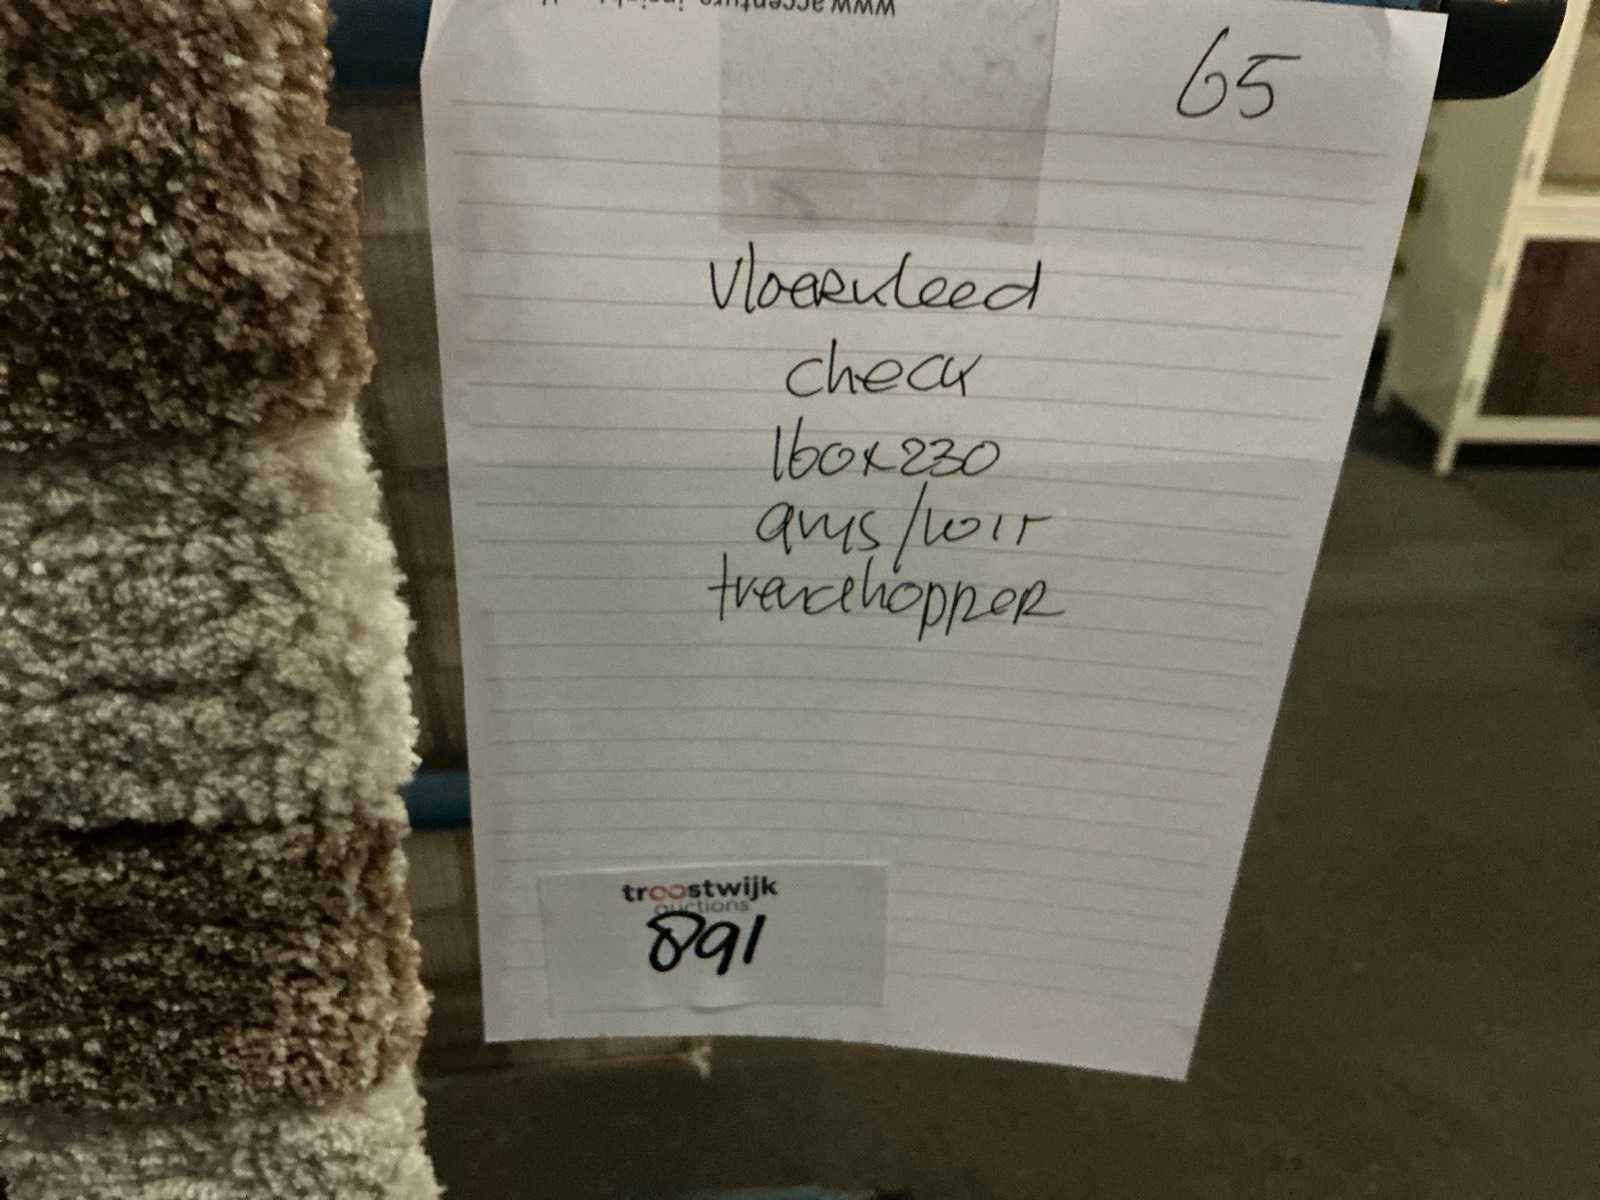 www.accenture
65
vloerkleed
check
160x230
grijs/wit
trendhopper
troostwijk
auctions
891